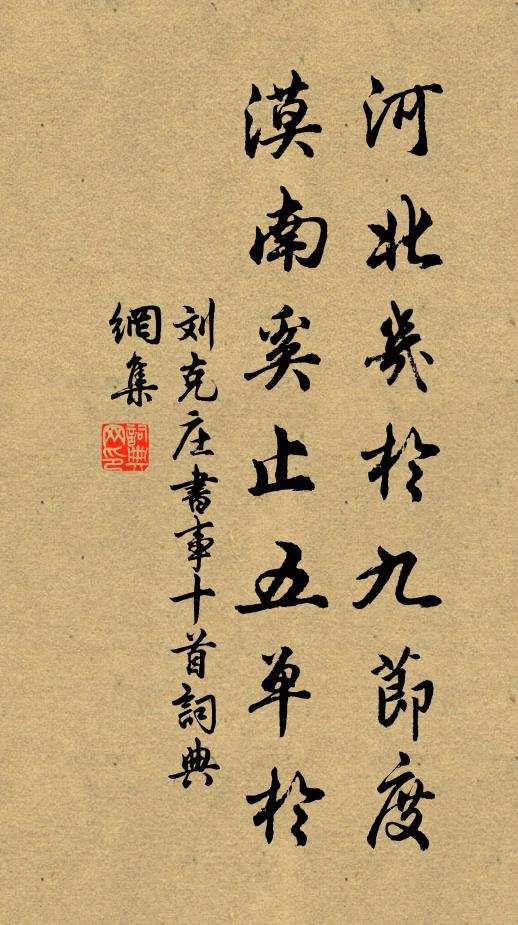 河北几於九節度
漠南奚止五单於
刘克庄書事十首詞典
網集
詞典網印